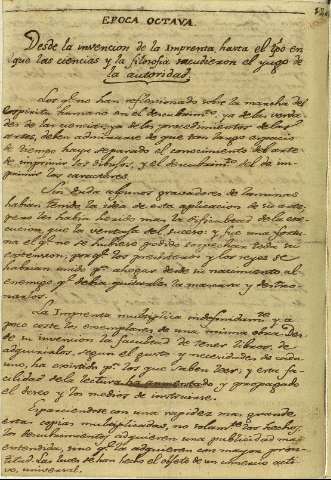 EPOCA OCTAVA.
Desde la invencion de la Imprenta, hasta el tpo en
que las ciencias y la filosofia sacudieron el yugo de
la autoridad.
Los que no han reflexionado sobre la marcha del
espiritu humano en el descubrim.to, ya de las verda-
des de las ciencias, ya de los procedimientos de las
artes, deben admirarse de que tan largo espacio
de tiempo haya separado el conocimiento del arte
de imprimir los dibujos, y el descubrim.to del de im-
primir los caracteres.
Sin duda algunos gravadores de laminas
habian tenido la idea de esta aplicacion de su arte,
pero les habia hecho mas la dificultad de la ese-
cucion, que la ventaja del suceso: y fue una fortu-
na el que no se hubiese podido sospechar toda su
estension, por que los presviteros y los reyes se
habrian unido p.a ahogar desde su nacimiento al
enemigo que debia quitarles la mascara y destro-
narlos.
La Imprenta multiplica indefinidam.te y a
poco coste los exemplares de una misma obra. Des-
de su invencion la facultad de tener libros, de
adquirirlos, segun el gusto y necesidades de cada
uno, ha existido p.a los que saben leer; y esta fa-
cilidad de la lectura ha aumentado y propagado
el deseo y los medios de instruirse.
Esparciendose con una rapidez mas grande
estas copias multiplicadas, no solam.te los hechos,
los descubrimientos adquieren una publicidad mas
estendida, sino que la adquieren con mayor pron-
titud. Las luces se han hecho el objeto de un comercio acti-
vo, universal.